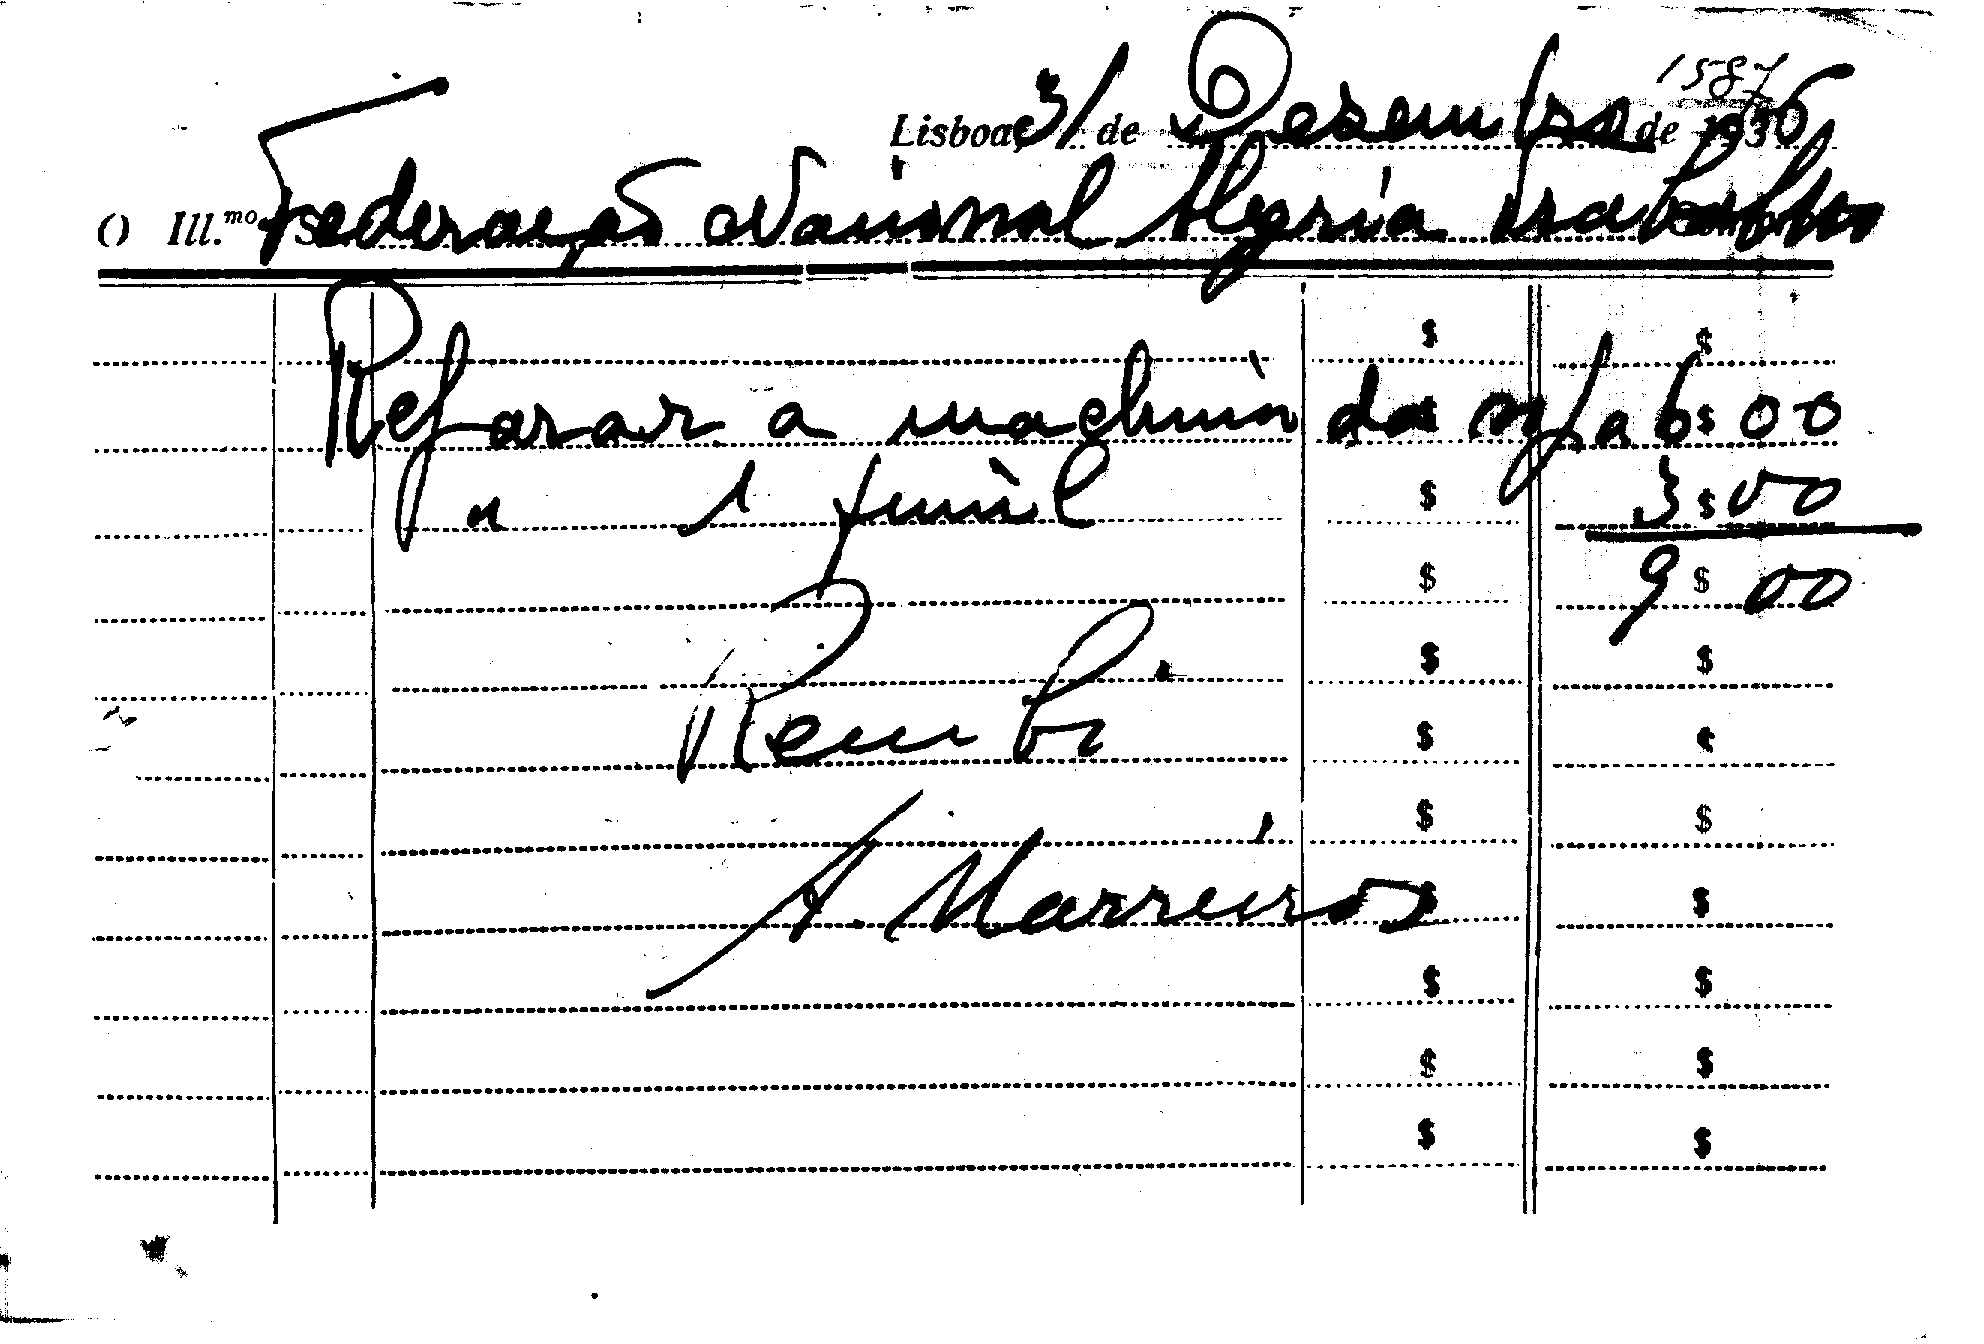 1587
Lisboa, 31 de Dezembro de 1936
O Ill.mo Sr. Federação Nacional Alegria Trabalho
$ $
Reparar a machin da sopa 6$00
" 1 funil $ 3$00
$ 9$00
$ $
Recebi $ $
$ $
A. Marreiros $ $
$ $
$ $
$ $